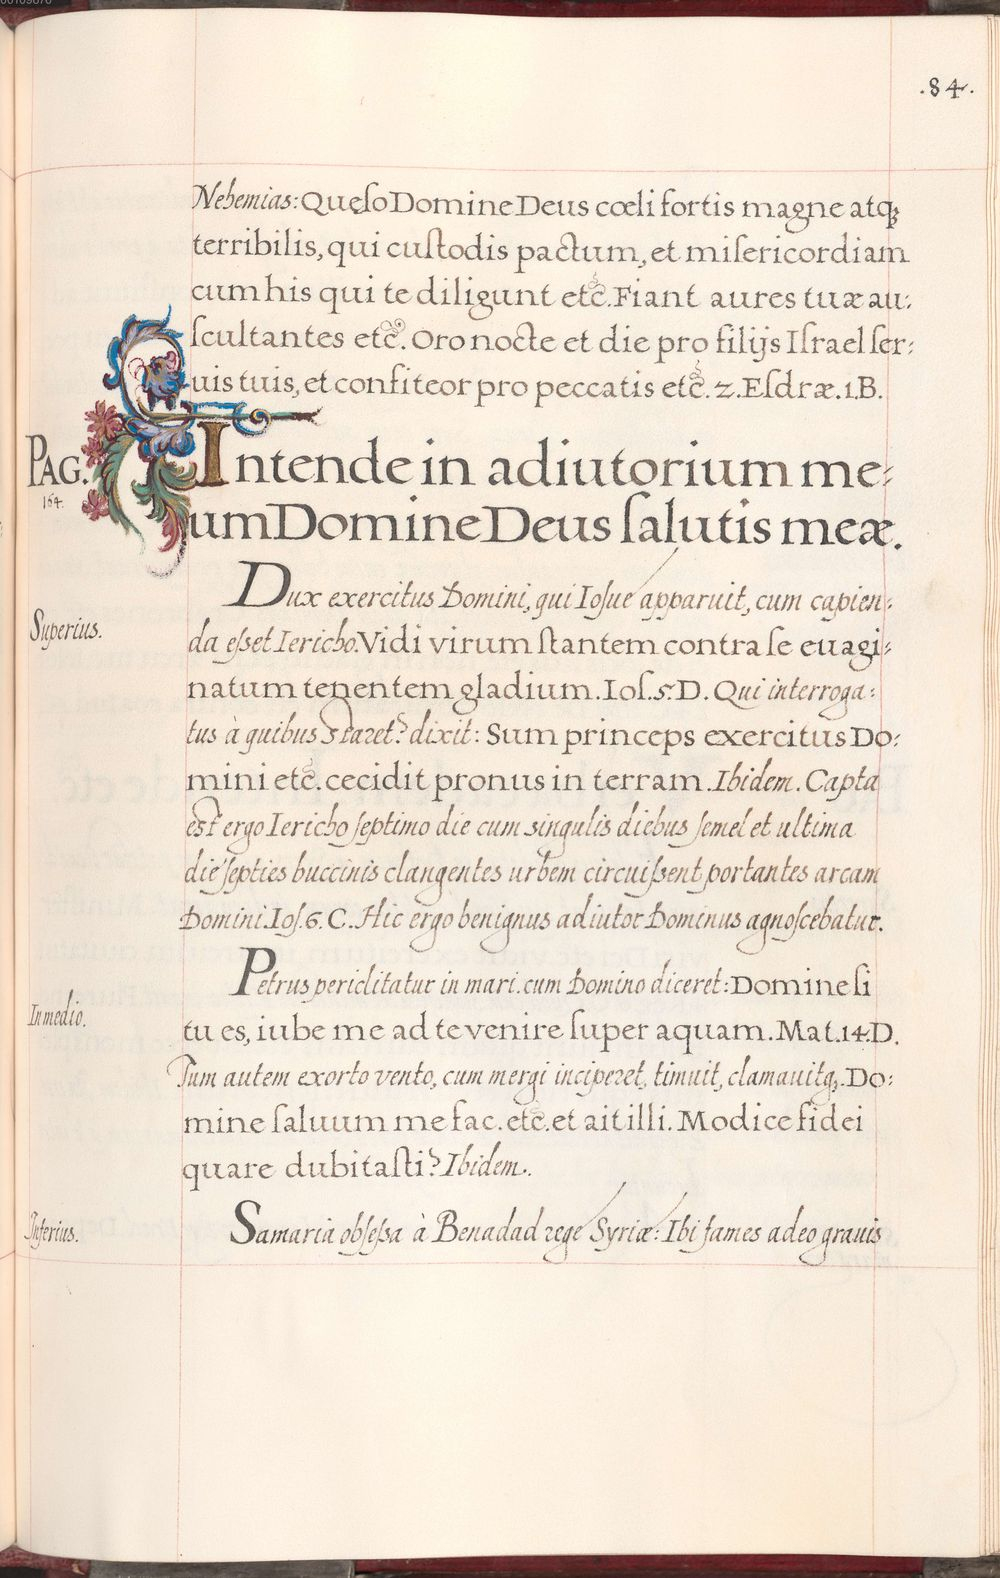 .84.
Nehemias: Quęſo Domine Deus cœli fortis magne atq;
terribilis, qui cuſtodis pactum, et miſericordiam
cum his qui te diligunt etc̃. Fiant aures tuæ au:
ſcultantes etc̃. Oro nocte et die pro filijs Iſrael ſer:
uis tuis, et confiteor pro peccatis etc̃. 2. Eſdræ. 1. B.
PAG.
164.
Intende in adiutorium me:
um Domine Deus ſalutis meæ.
Superius.
Dux exercitus Domini, qui Ioſue apparuit, cum capien:
da eſset Iericho. Vidi virum ſtantem contra ſe euagi:
natum tenentem gladium. Ioſ. 5. D. Qui interroga:
tus à quibus staret? dixit: Sum princeps exercitus Do:
mini etc̃. cecidit pronus in terram. Ibidem. Capta
est ergo Iericho ſeptimo die cum singulis diebus ſemel et ultima
die ſepties buccinis clangentes urbem circuiſsent portantes arcam
Domini. Ioſ. 6. C. Hic ergo benignus adiutor Dominus agnoſcebatur.
In medio.
Petrus periclitatur in mari. cum Domino diceret: Domine ſi
tu es, iube me ad te venire ſuper aquam. Mat. 14. D.
Tum autem exorto vento, cum mergi inciperet, timuit, clamauitq;. Do:
mine ſaluum me fac. etc̃. et ait illi. Modice fidei
quare dubitaſti? Ibidem.
Inferius.
Samaria obſeſsa à Benadad rege Syriæ: Ibi fames adeo grauis